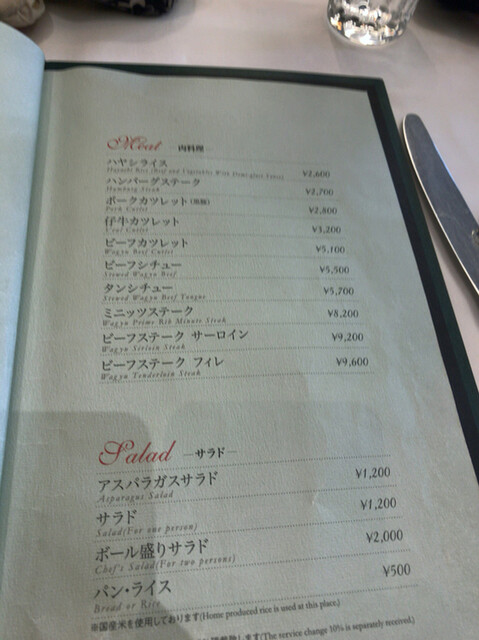 Meat —肉料理—
ハヤシライス ¥2,600
Hayashi Rice (Beef and Vegetable) With Demi-glace Sauce
ハンバーグステーク ¥2,700
Hamburg Steak
ポークカツレット ¥2,800
Pork Cutlet
仔牛カツレット ¥3,200
Veal Cutlet
ビーフカツレット ¥5,100
Wagyu Beef Cutlet
ビーフシチュー ¥5,500
Stewed Wagyu Beef
タンシチュー ¥5,700
Stewed Wagyu Beef Tongue
ミニッツステーク ¥8,200
Wagyu Prime Rib Minute Steak
ビーフステーク サーロイン ¥9,200
Wagyu Sirloin Steak
ビーフステーク フィレ ¥9,600
Wagyu Tenderloin Steak
Salad —サラド—
アスパラガスサラド ¥1,200
Asparagus Salad
サラド ¥1,200
Salad(For one person)
ボール盛りサラド ¥2,000
Chef's Salad(For two persons)
パン・ライス ¥500
Bread or Rice
※国産米を使用しております(Home produced rice is used at this place.)
(The service charge 10% is separately received.)